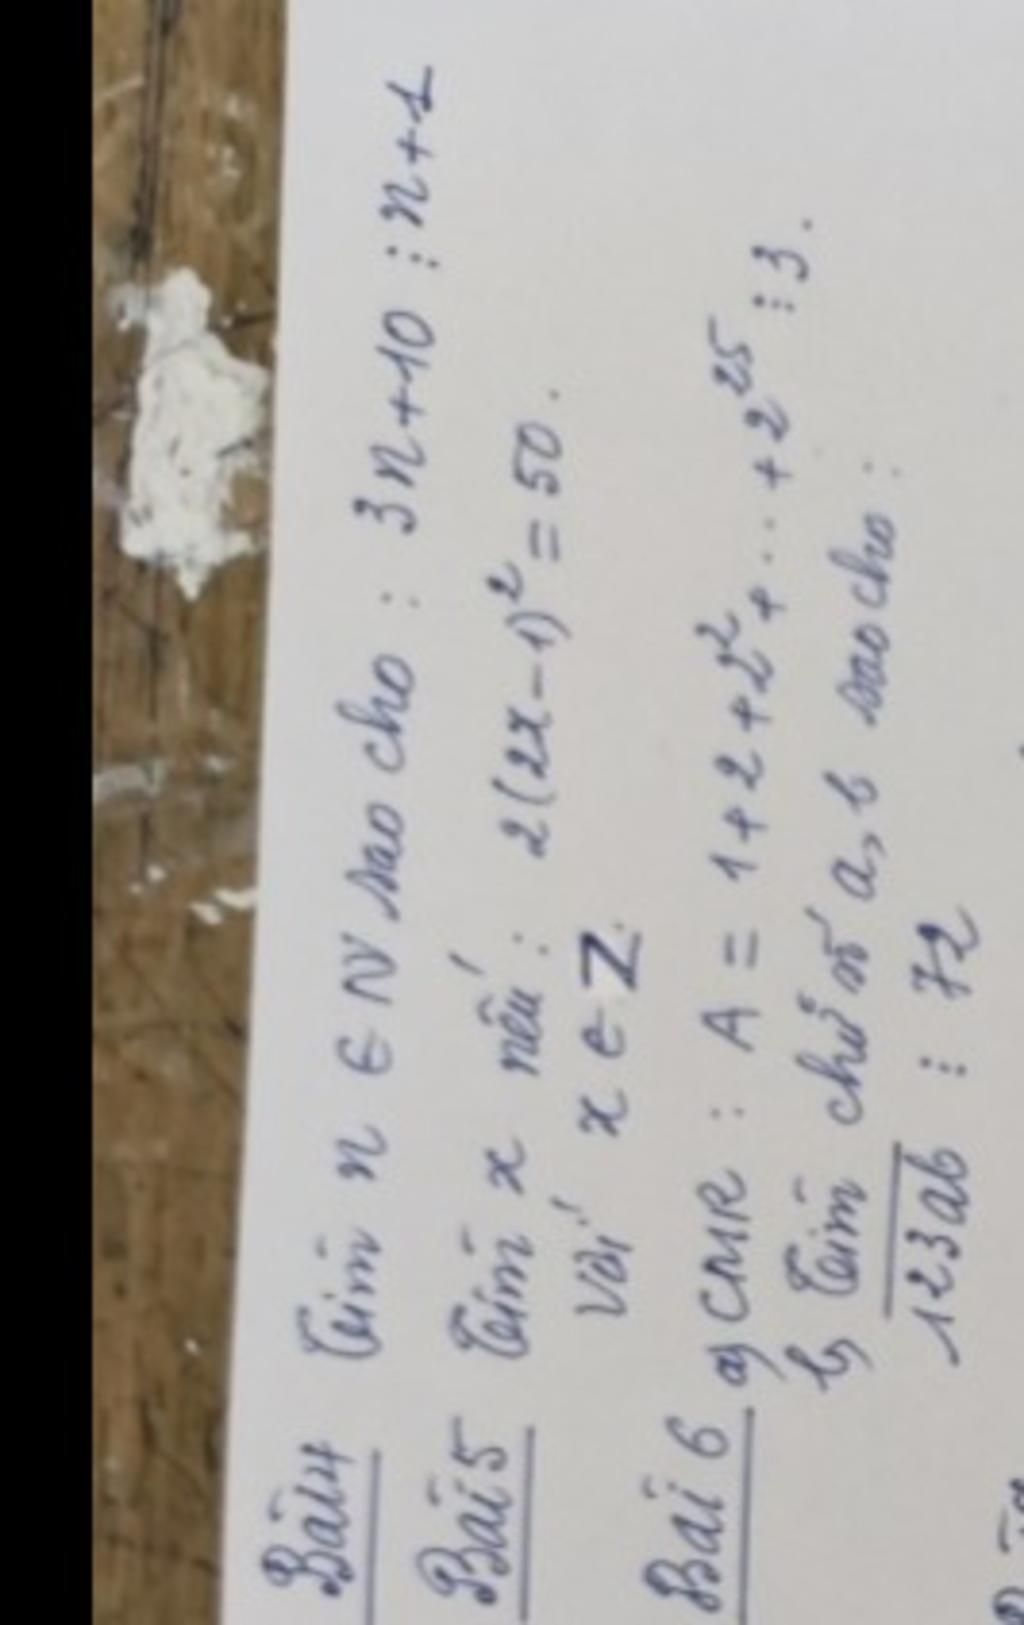 Bài 4 Tìm n ∈ N sao cho : 3n+10 ⋮ n+1
Bài 5 Tìm x nếu : 2(2x-1)² = 50.
Với x ∈ Z.
Bài 6 a) CMR : A = 1+2+2²+...+2²⁵ ⋮ 3.
b) Tìm chữ số a, b sao cho :
\overline{123ab} ⋮ 72